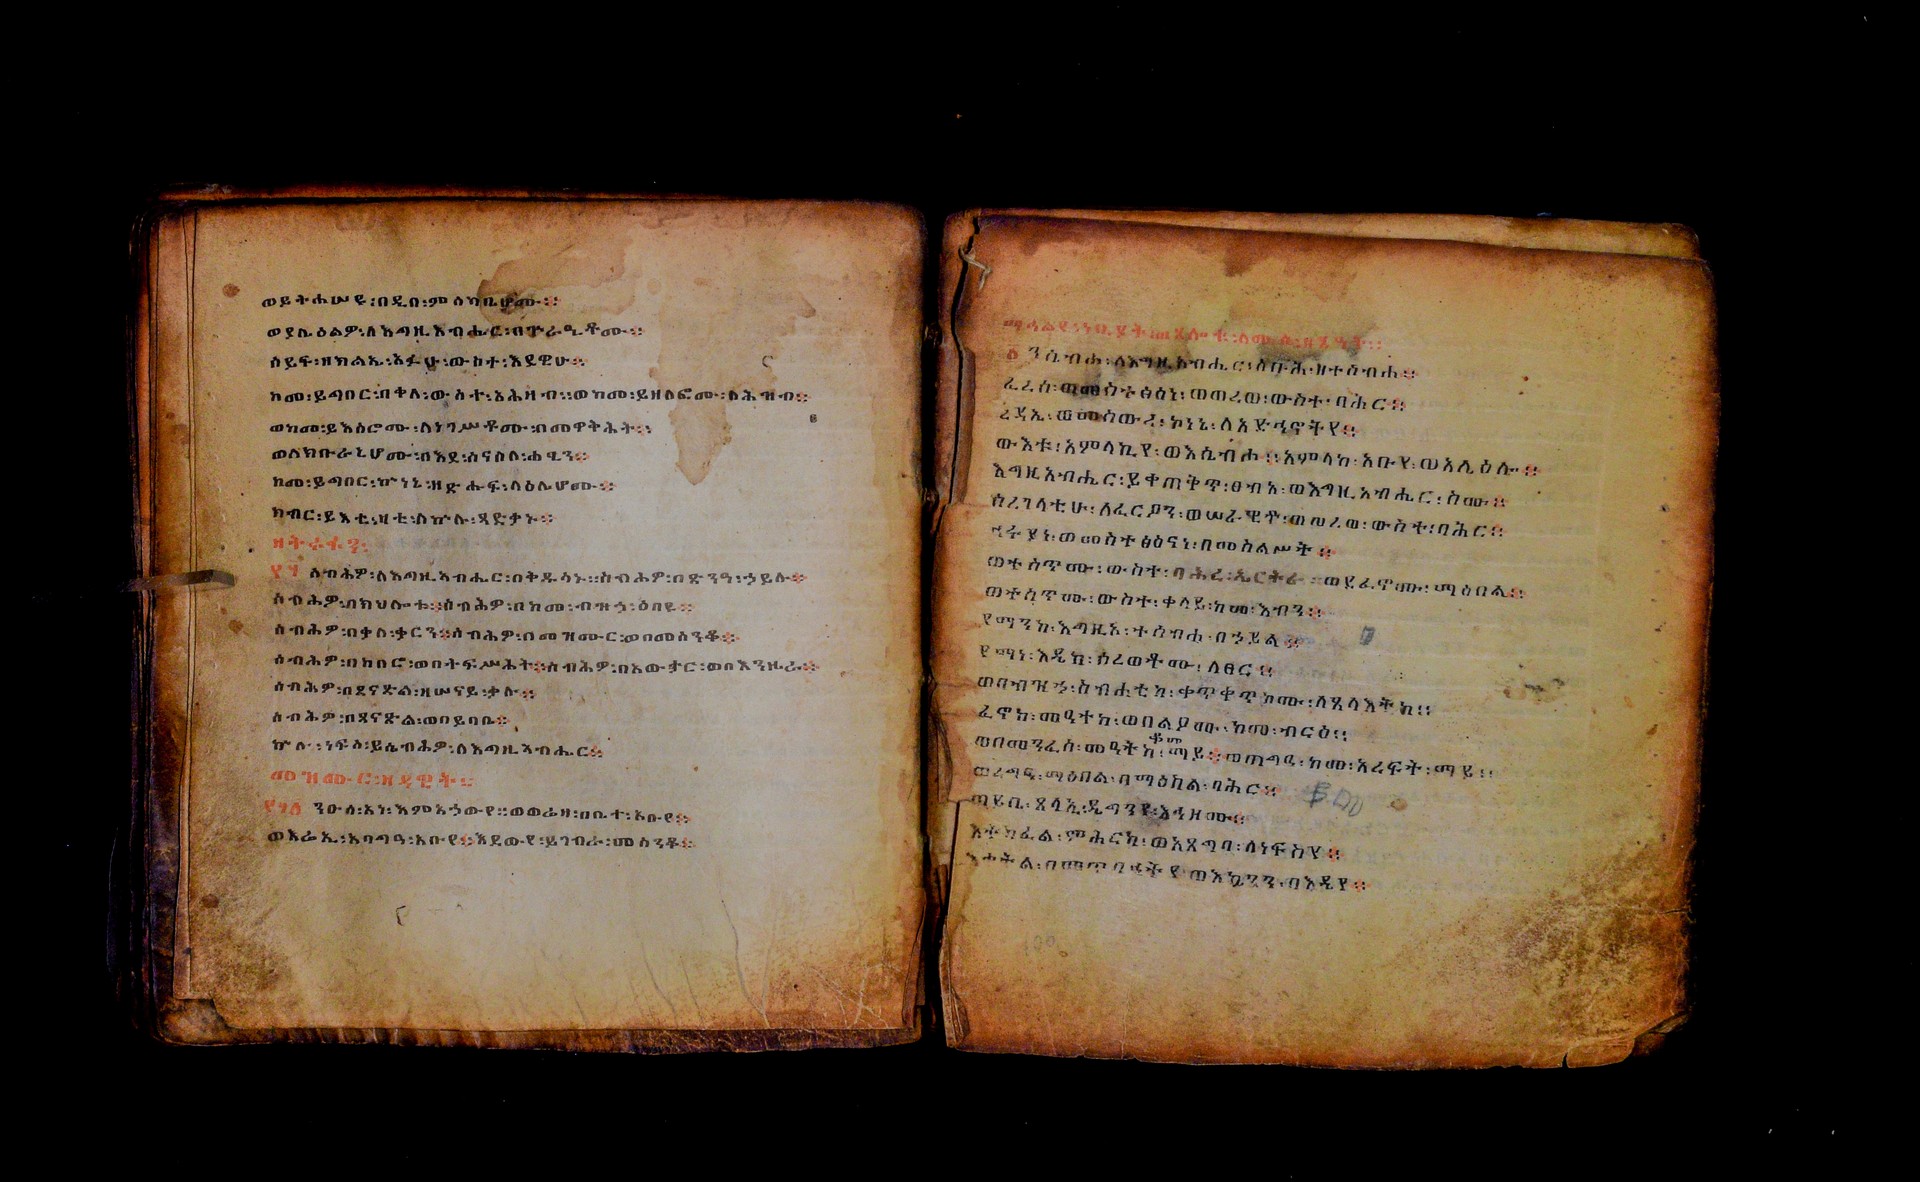 ወይትሐሠዩ፡በዲበ፡ምስካቢሆሙ።
ወያሌዕልዎ፡ለእግዚአብሔር፡በጕራዒቶሙ።
ሰይፍ፡ዘክልኤ፡አፉሁ፡ውስተ፡እደዊሁ።
ከመ፡ይግበር፡በቀለ፡ውስተ፡አሕዛብ።ወከመ፡ይዘለፎሙ፡ለሕዝብ።
ወከመ፡ይእስሮሙ፡ለነገሥቶሙ፡በመዋቅሕት።
ወለክቡራኒሆሙ፡በእደ፡ሰናስለ፡ሐፂን።
ከመ፡ይግበር፡ኵነኔ፡ዘጽሑፍ፡ላዕሌሆሙ።
ክብር፡ይእቲ፡ዛቲ፡ለኵሉ፡ጻድቃኑ።
ሰብሕዎ፡ለእግዚአብሔር፡በቅዱሳኑ።ሰብሕዎ፡በጽንዓ፡ኃይሉ።
ሰብሕዎ፡በክህሎቱ።ሰብሕዎ፡በከመ፡ብዝኃ፡ዕበዩ።
ሰብሕዎ፡በቃለ፡ቀርን።ሰብሕዎ፡በመዝሙር፡ወበመሰንቆ።
ሰብሕዎ፡በከበሮ፡ወበትፍሥሕት።ሰብሕዎ፡በአውታር፡ወበእንዚራ።
ሰብሕዎ፡በጸናጽል፡ዘሠናይ፡ቃሉ።
ሰብሕዎ፡በጸናጽል፡ወበይባቤ።
ኵሉ፡ነፍስ፡ይሴብሖ፡ለእግዚአብሔር።
መዝሙር፡ዘዳዊት።
ንዑስ፡አነ፡እምአኃውየ።ወወሬዛ፡በቤተ፡አቡየ።
ወእሬኢ፡አባግዓ፡አቡየ።እደውየ፡ይገብራ፡መሰንቆ።
ንሴብሖ፡ለእግዚአብሔር፡ስቡሕ፡ዘተሰብሐ።
ፈረሰ፡ወመስተፅዕነ፡ወጠረወ፡ውስተ፡በሕር።
ረዳኢ፡ወመሰውረ፡ኮነኒ፡ለአድኅኖትየ።
ውእቱ፡አምላኪየ፡ወእሴብሖ።አምላከ፡አቡየ፡ወአሌዕሎ።
እግዚአብሔር፡ይቀጠቅጥ፡ፀብአ፡ወእግዚአብሔር፡ስሙ።
ሰረገላቲሁ፡ለፈርዖን፡ወሠራዊቶ፡ወጠረወ፡ውስተ፡በሕር።
ኅሩያነ፡ወመስተፅዕናነ፡በመስልሥት።
ወተሰጥሙ፡ውስተ፡ባሕረ፡ኤርትራ።ወደፈኖሙ፡ማዕበል።
ወተሰጥሙ፡ውስተ፡ቀላይ፡ከመ፡እብን።
የማንከ፡እግዚኦ፡ተሰብሐ፡በኃይል።
የማነ፡እዴከ፡ሰረወቶሙ፡ለፀር።
ወበብዝኃ፡ስብሐቲከ፡ቀጥቀጥኮሙ፡ለጸላእትከ።
ፈኖከ፡መዓተከ፡ወበልዖሙ፡ከመ፡ብርዕ።
ወበመንፈሰ፡መዓትከ፡ቆመ፡ማይ።ወጠግዓ፡ከመ፡አረፍት፡ማይ።
ወረግዓ፡ማዕበል፡በማዕከለ፡ባሕር።
ወይቤ፡ጸላኢ፡ዴጊንየ፡እኅዞሙ።
እትካፈል፡ምሕርካ፡ወአጸግባ፡ለነፍስየ።